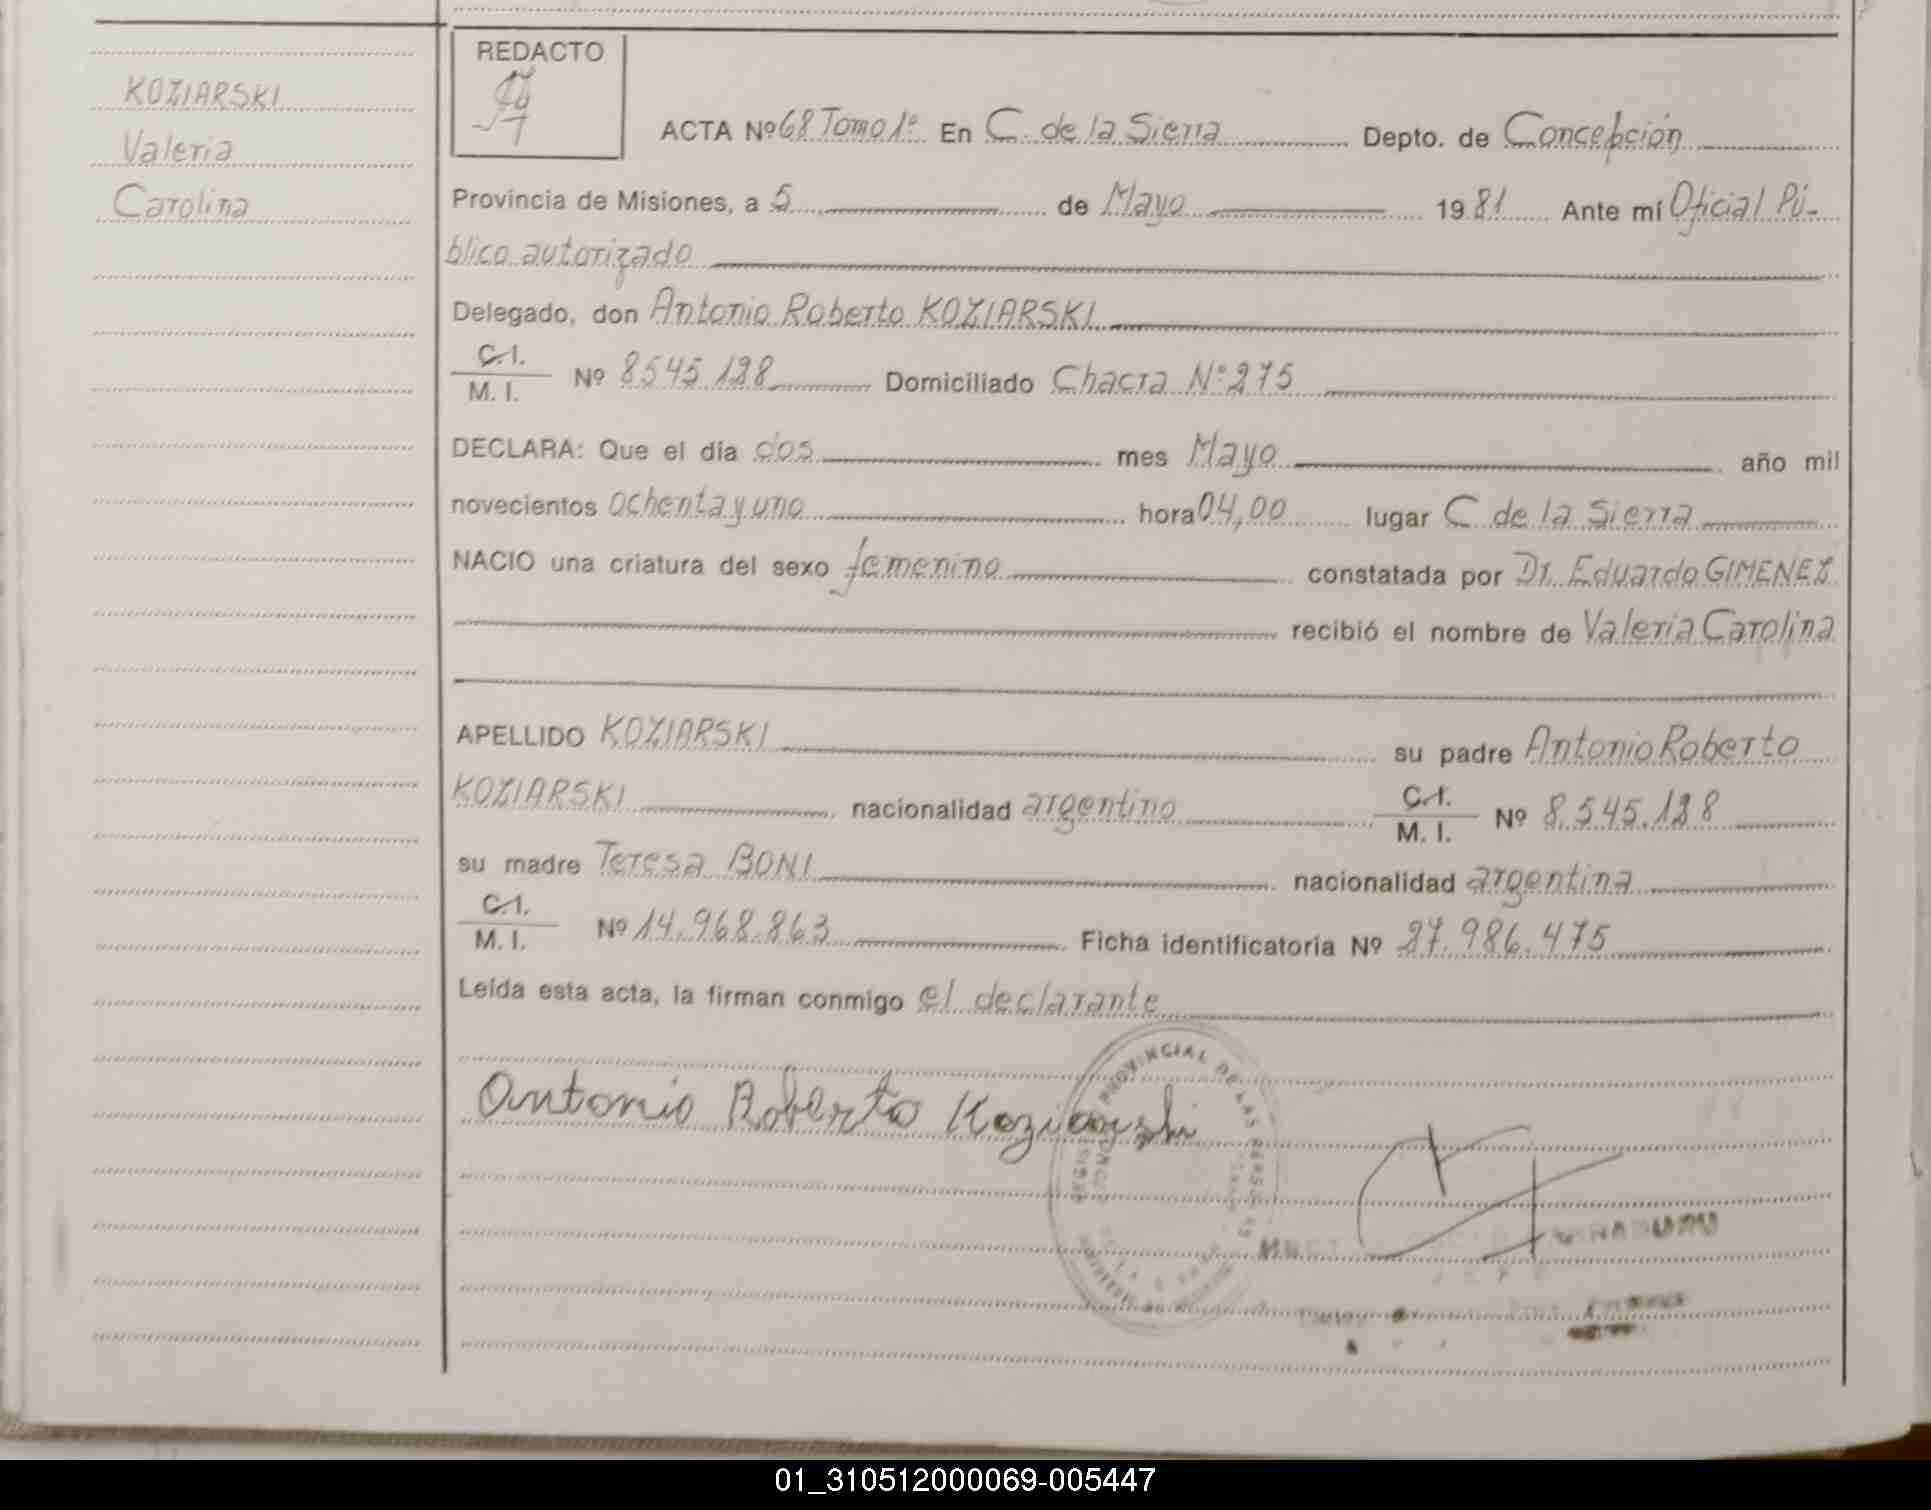 KOZIARSKI
Valeria
Carolina
REDACTO
ACTA Nº 68 Tomo 1º En C. de la Sierra Depto. de Concepción
Provincia de Misiones, a 5 de Mayo 1981 Ante mí Oficial Pú-
blico autorizado
Delegado, don Antonio Roberto KOZIARSKI
C.I.
M. I. Nº 8545.138 Domiciliado Chacra Nº 275
DECLARA: Que el día dos mes Mayo año mil
novecientos ochenta y uno hora 04,00 lugar C de la Sierra
NACIO una criatura del sexo femenino constatada por Dr. Eduardo GIMENEZ
recibió el nombre de Valeria Carolina
APELLIDO KOZIARSKI su padre Antonio Roberto
KOZIARSKI nacionalidad argentino C.I.
M. I. Nº 8.545.138
su madre Teresa BONI nacionalidad argentina
C.I.
M. I. Nº 14.968.863 Ficha identificatoria Nº 27.986.475
Leída esta acta, la firman conmigo el declarante
Antonio Roberto Koziarski
PROVINCIAL DE LAS
01_310512000069-005447